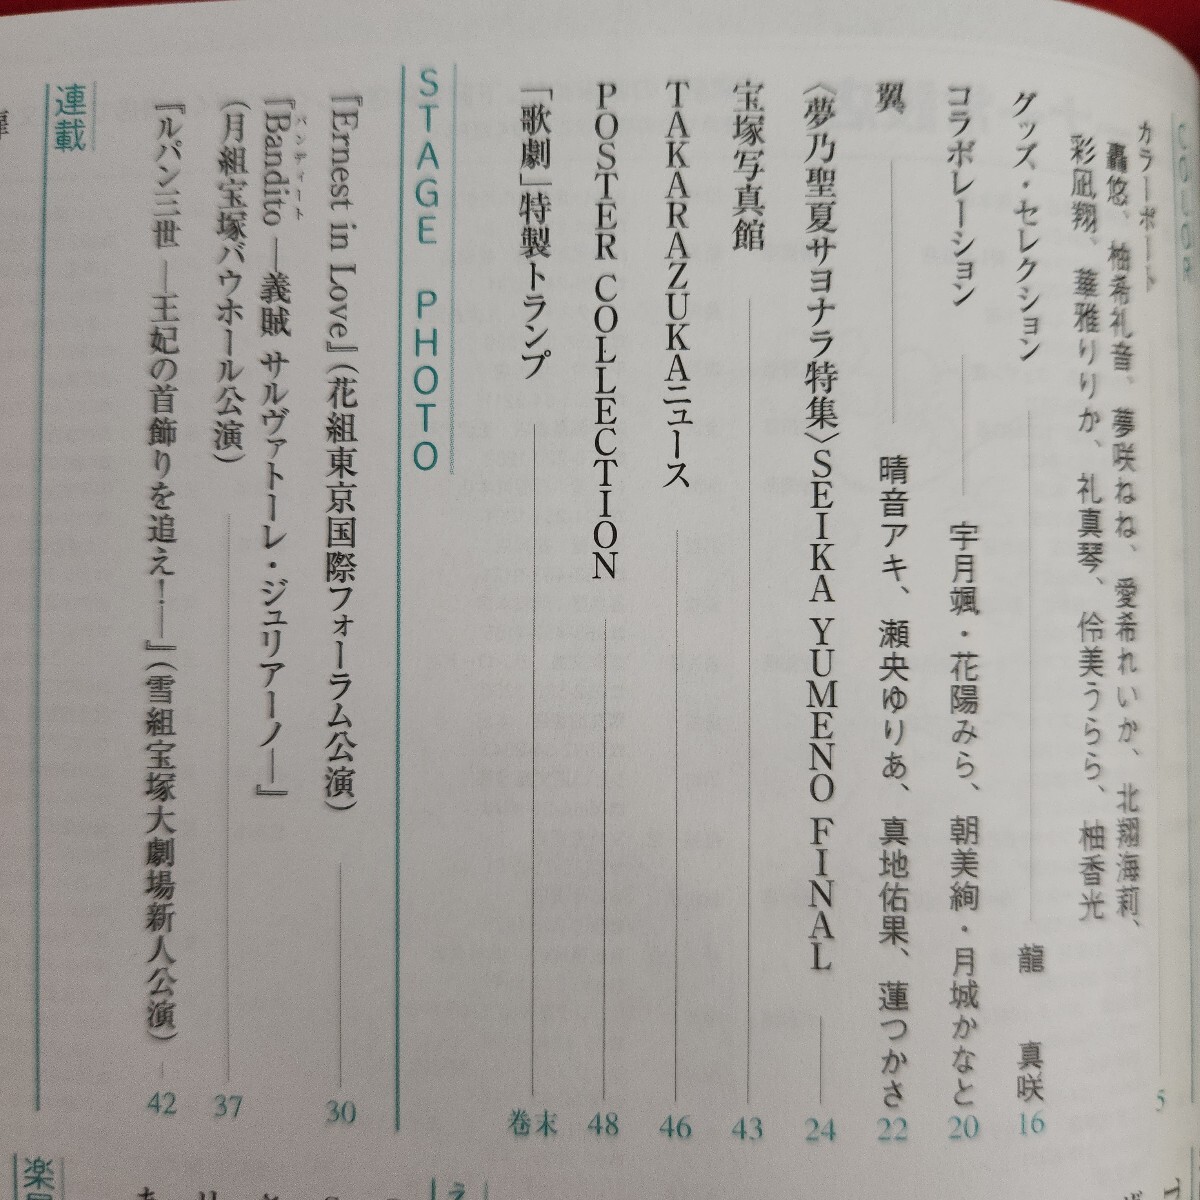 COLOR
カラーポート 5
轟悠、柚希礼音、夢咲ねね、愛希れいか、北翔海莉、
彩凪翔、華雅りりか、礼真琴、伶美うらら、柚香光
グッズ・セレクション 龍 真咲 16
コラボレーション 宇月颯・花陽みら、朝美絢・月城かなと 20
翼 晴音アキ、瀬央ゆりあ、真地佑果、蓮つかさ 22
〈夢乃聖夏サヨナラ特集〉SEIKA YUMENO FINAL 24
宝塚写真館 43
TAKARAZUKAニュース 46
POSTER COLLECTION 48
「歌劇」特製トランプ 巻末
STAGE PHOTO
『Ernest in Love』(花組東京国際フォーラム公演) 30
『Bandito ―義賊 サルヴァトーレ・ジュリアーノ―』
バンディート
(月組宝塚バウホール公演) 37
『ルパン三世 ―王妃の首飾りを追え!―』(雪組宝塚大劇場新人公演) 42
連載
楽